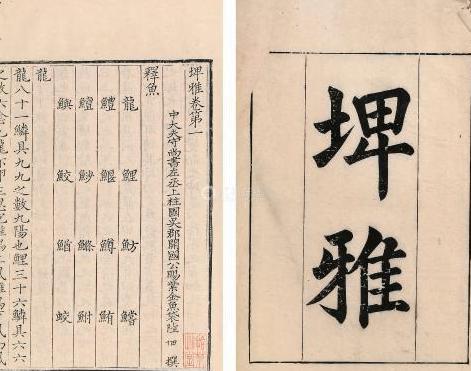 埤雅
埤雅卷第一
中大夫守尚書左丞上柱國吳郡開國公賜紫金魚袋陸 佃 撰
釋魚
龍 鯉 魴 鱨
鱣 鰋 鱒 鮪
鱧 魦 鰷 鮒
鱮 鮫 鰌 蛟
龍
龍八十一鱗具九九之數九陽也鯉三十六鱗具六六